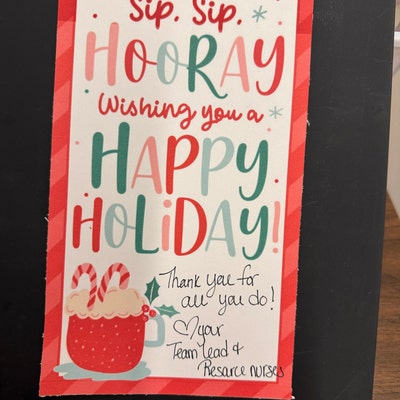 Sip, Sip,
HOORAY
Wishing you a
HAPPY
HOLiDAY!
Thank you for
all you do!
♡ your
Team Lead &
Resarce nurses